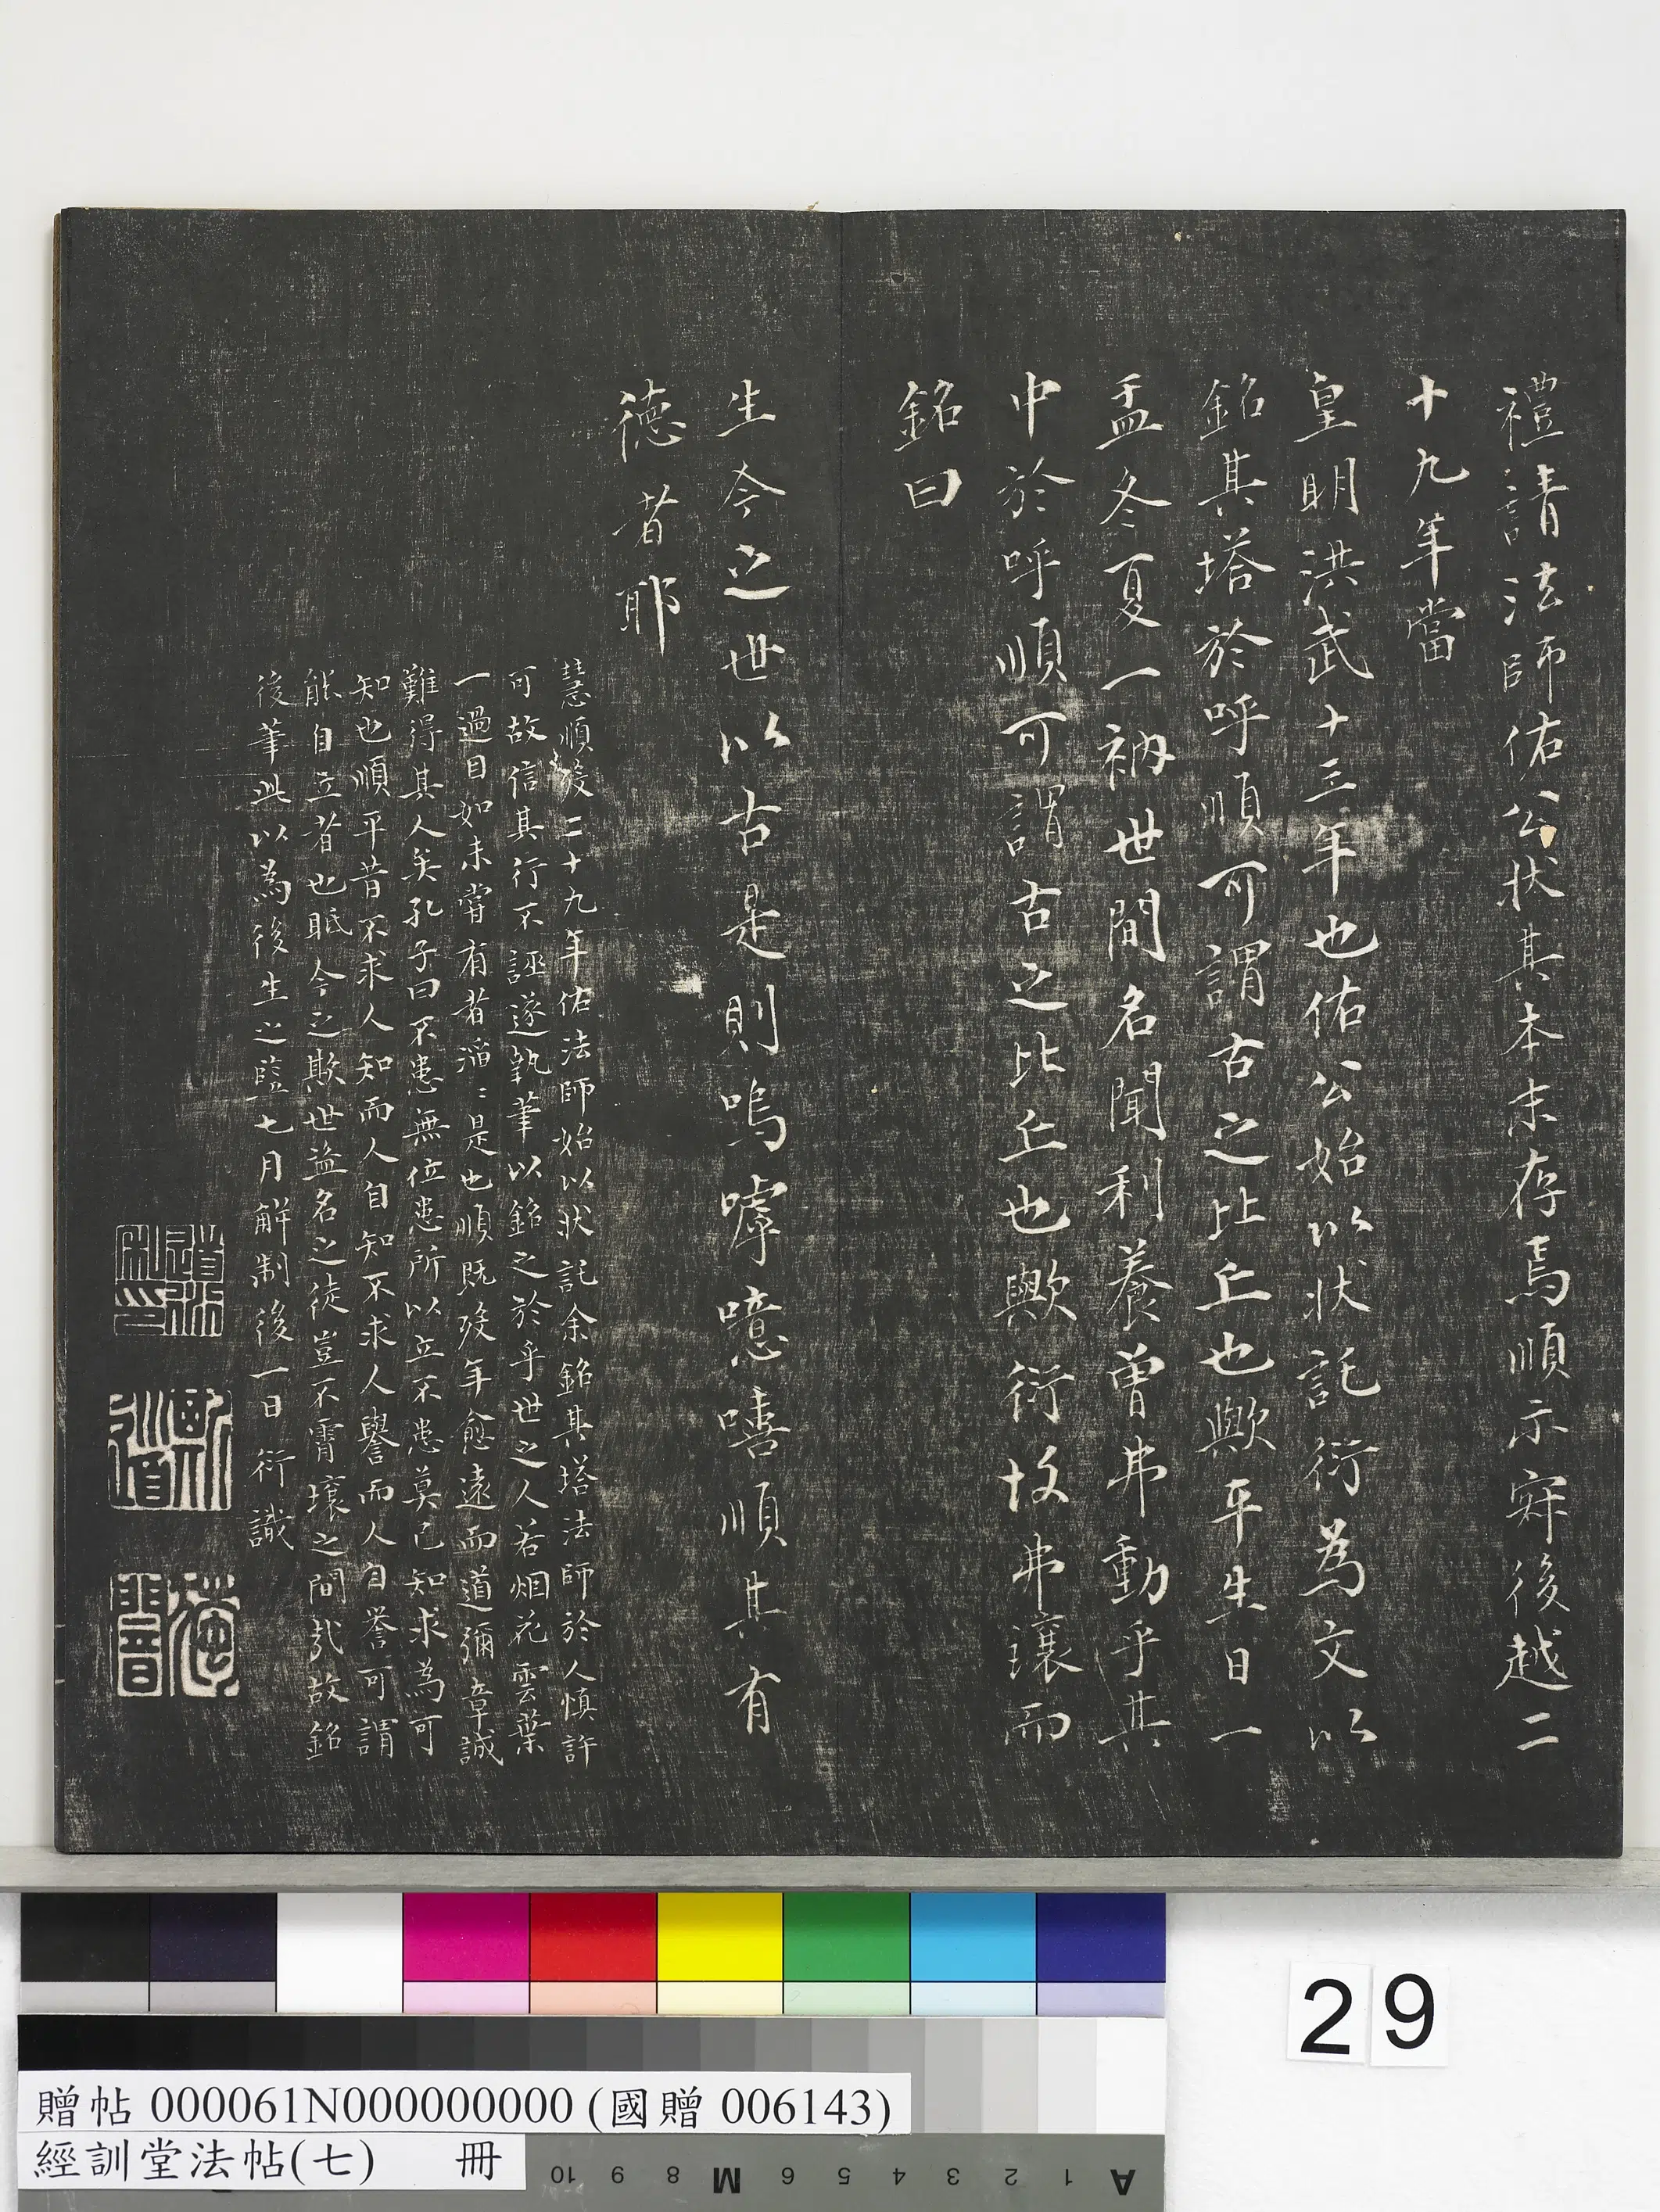 禮請法師佑公狀其本末存焉順示寂後越二
十九年當
皇明洪武十三年也佑公始以狀託衍為文以
銘其塔於呼順可謂古之比丘也歟平生日一
盂冬夏一衲世間名聞利養曾弗動乎其
中於呼順可謂古之比丘也歟衍故弗讓而
銘曰
生今之世以古是則嗚嘑噫嘻順其有
德者耶
慧順歿二十九年佑法師始以狀託余銘其塔法師於人慎許
可故信其行不誣遂執筆以銘之於乎世之人若烟花雲葉
一過目如未嘗有者滔〻是也順既歿年愈遠而道彌章誠
難得其人矣孔子曰不患無位患所以立不患莫己知求為可
知也順平昔不求人知而人自知不求人譽而人自譽可謂
能自立者也眡今之欺世盜名之徒豈不霄壤之間哉故銘
後筆此以為後生之監七月解制後一日 衍識
道衍私印
斯道
29
贈帖 000061N000000000 (國贈 006143)
經訓堂法帖(七) 冊
A 1 2 3 4 5 6 M 8 9 10